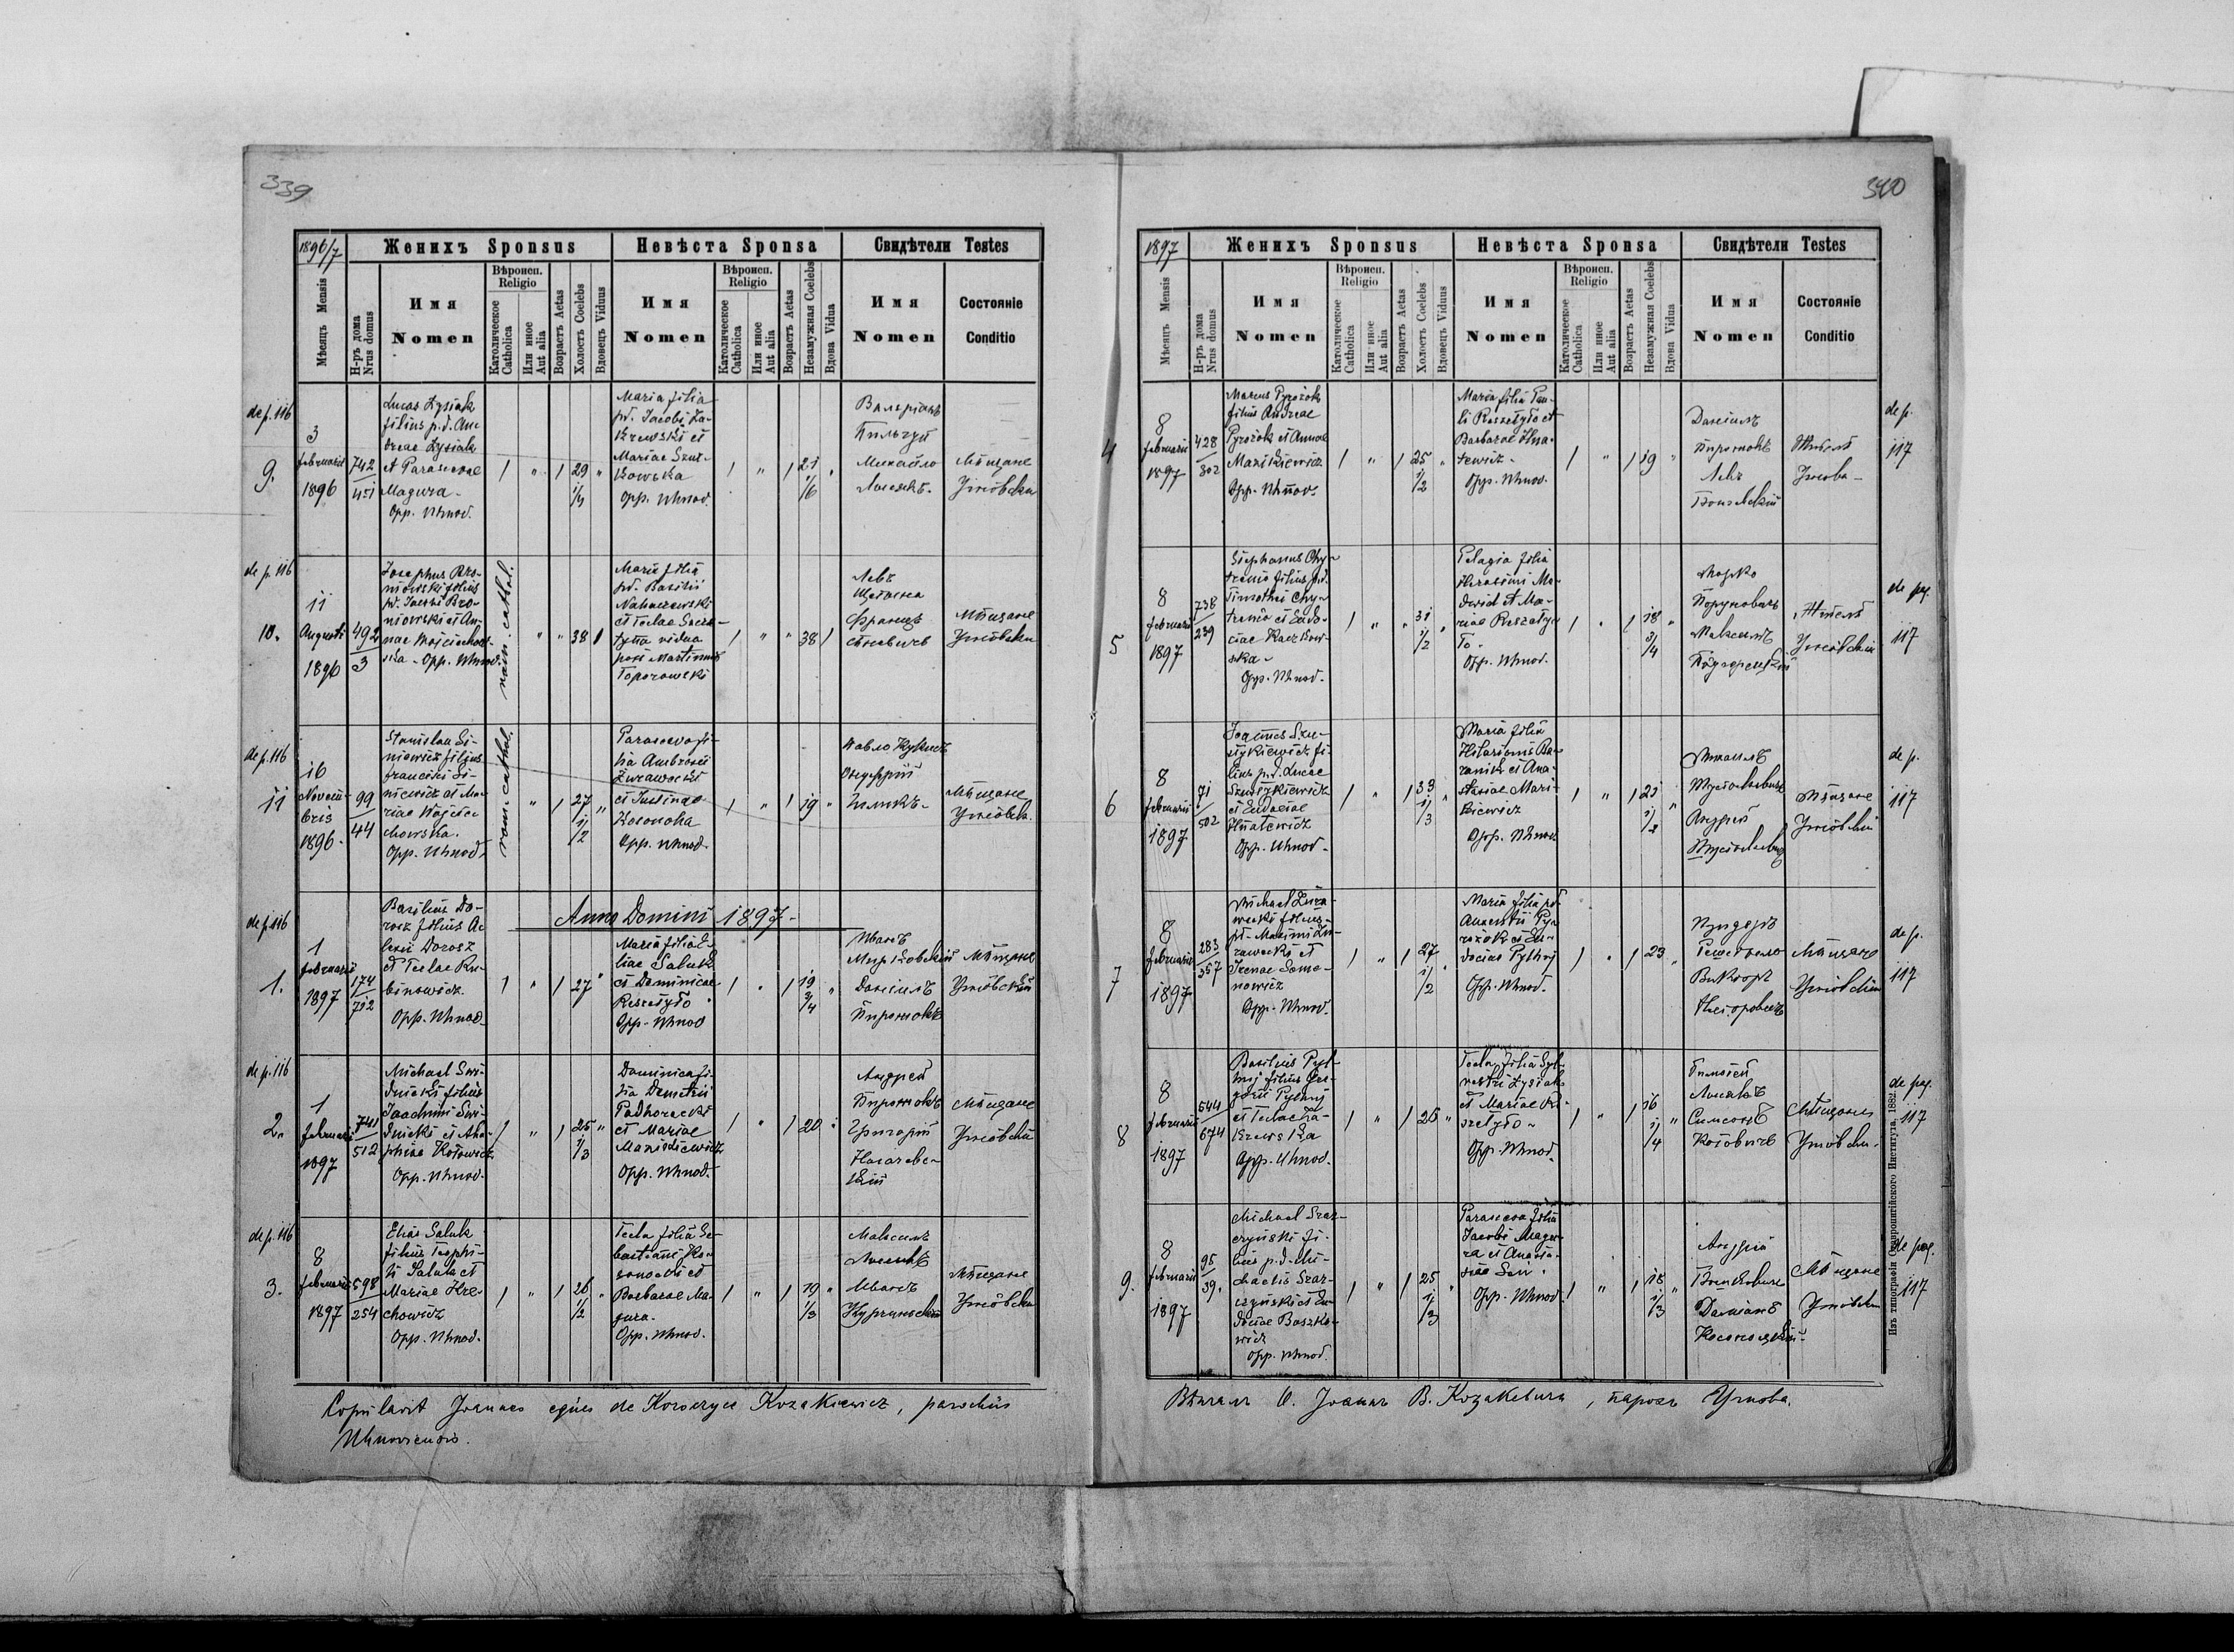 339
1896/7
Женихъ Sponsus
Невѣста Sponsa
Свидѣтели Testes
Мѣсяцъ Mensis
Н-ръ дома
Nrus domus
Имя
Nomen
Вѣроисп.
Religio
Католическое
Catholica
Или иное
Aut alia
Возрастъ Aetas
Холостъ Coelebs
Вдовецъ Viduus
Имя
Nomen
Вѣроисп.
Religio
Католическое
Catholica
Или иное
Aut alia
Возрастъ Aetas
Незамужная Coelebs
Вдова Vidua
Имя
Nomen
Состояніе
Conditio
de p. 116
9.
3
februarii
1896
742
451
Lucas Łysiak
filius p.d. An-
dreae Łysiak
et Parascevae
Magura.
Opp. Uhnod.
1 " 1 29 1/4 "
Maria filia
pd. Jacobi Za-
krewski et
Mariae Szur-
kowska
Opp. Uhnod.
1 " 1 21 1/6 "
Михайло
Мѣщане
Угнôвски
de p. 116
10.
11
Augusti
1896
492
3
Josephus Bro-
niowski filius
pd. Jacobi Bro-
niowski et An-
nae Wojciechow-
ska - Opp. Uhnod.
rom. cathol.
" " 38 1
Maria filia
pd. Basilii
Nahaczewski
et Teclae Szcze-
vidua
post Martinum
Toporowski
1 " " 38 1
Левъ
Щетина
Францъ
Мѣщане
Угнôвски
de p. 116
11
16
Novem-
bris
1896.
99
44
Stanislau Si-
niewicz filius
Francisci Si-
niewicz et Ma-
riae Wojcie-
chowska.
Opp. Uhnod.
rom. cathol.
" 1 27 1/2 "
Parasceva fi-
lia Ambrosii
Żurawecki
et Justinae
Kosonoha
Opp. Uhnod.
1 " 1 19 "
Павло Кукизъ
Онуфрій
Мѣщане
Угнôвски
Anno Domini 1897
de p. 116
1.
1
februarii
1897
174
712
Basilius Do-
rosz filius A-
lexii Dorosz
et Teclae Ku-
binowicz.
Opp. Uhnod.
1 " 1 27 "
Maria filia E-
liae Saluk
et Dominicae
Reszetyło
Opp. Uhnod
1 " 1 19 3/4 "
Иванъ
Данiилъ
Пирожокъ
Мѣщане
Угнôвскiи
de p. 116
2.
1
februarii
1897
741
512
Michael Swi-
dnicki filius
Joachimi Swi-
dnicki et Aha-
phiae Kotowicz
Opp. Uhnod.
1 " 1 25 1/3 "
Dominica fi-
lia Demetrii
Padhorecki
et Mariae
Mazikiewicz
Opp. Uhnod.
1 " 1 20 "
Андрей
Пирожокъ
Григорій
Нагачев-
скiй
Мѣщане
Угнôвскiи
de p. 116
3.
8
februarii
1897
598
254
Elias Saluk
filius Teophi-
li Saluk et
Mariae Kre-
chowicz
Opp. Uhnod.
1 " 1 26 1/2 "
Tecla filia Se-
bastiani Ko-
sonocki et
Barbarae Ma-
gura.
Opp. Uhnod.
1 " 1 19 1/3 "
Максимъ
Лисякъ
Иванъ
Мѣщане
Угнôвски
Copulavit Joannes eques de Korczyce Kozakiewicz, parochus
Uhnoviensis.
340
1897
Женихъ Sponsus
Невѣста Sponsa
Свидѣтели Testes
Мѣсяцъ Mensis
Н-ръ дома
Nrus domus
Имя
Nomen
Вѣроисп.
Religio
Католическое
Catholica
Или иное
Aut alia
Возрастъ Aetas
Холостъ Coelebs
Вдовецъ Viduus
Имя
Nomen
Вѣроисп.
Religio
Католическое
Catholica
Или иное
Aut alia
Возрастъ Aetas
Незамужная Coelebs
Вдова Vidua
Имя
Nomen
Состояніе
Conditio
4
8
februarii
1897
428
302
Marcus Pyrożok
filius Andreae
Pyrożok et Annae
Mazikiewicz
Opp. Uhnod.
1 " 1 25 1/2 "
Maria filia Pau-
li Reszetyło et
Barbarae Hna-
tewicz.
Opp. Uhnod.
1 " 1 19 "
Данiилъ
Пирожокъ
Левъ
Жителѣ
Угнова
de p.
117
5
8
februarii
1897
738
239
Stephanus Chy-
trenio filius pd.
Timothei Chy-
trenio et Eudo-
ciae Raczkow-
ska
Opp. Uhnod.
1 " " 31 1/2 "
Pelagia filia
Herasimi Ma-
dwid et Ma-
riae Reszety-
ło.
Opp. Uhnod.
1 " 1 18 3/4 "
Марко
Максимъ
Жителѣ
Угнôвски
de pag.
117
6
8
februarii
1897
71
502
Joannes Szu-
stykiewicz fi-
lius p.d. Lucae
Szustykiewicz
et Eudociae
Hnatewicz
Opp. Uhnod.
1 " 1 33 1/3 "
Maria filia
Hilarionis Ba-
ranik et Ana-
stasiae Mazi-
kiewicz
Opp. Uhnod.
1 " 1 21 1/2 "
Михаилъ
Андрей
Мѣщане
Угнôвскi
de p.
117
7
8
februarii
1897
283
357
Michael Żura-
wecki filius
pd. Maximi Żu-
rawecki et
Irenae Seme-
nowicz
Opp. Uhnod.
1 " 1 27 1/2 "
Maria filia pd.
Auxentii Pyr-
ożok et Eu-
dociae Pylhuj
Opp. Uhnod.
1 " 1 23 "
Викторъ
Мѣщане
Угнôвскiи
de p.
117
8
8
februarii
1897
544
674
Basilius Pyl-
huj filius Gre-
gorii Pylhuj
et Teclae Za-
krewska
Opp. Uhnod.
1 " 1 26 "
Tecla filia Syl-
vestri Łysiak
et Mariae Re-
szetyło
Opp. Uhnod.
1 " 1 16 1/4 "
Тимофей
Лисякъ
Симеонъ
Котовичъ
Мѣщане
Угнôвски.
de pag.
117
9.
8
februarii
1897
95
39.
Michael Szar-
czyński fi-
lius p.d. Mi-
chaelis Szar-
czyński et Eu-
dociae Baszko-
wicz
Opp. Uhnod.
1 " 1 25 1/3 "
Parasceva filia
Jacobi Magu-
ra et Anasta-
siae
Opp. Uhnod.
1 " 1 18 1/3 "
Андрiй
Дамiанъ
Мѣщане
Угнôвски
de pag.
117
Изъ типографіи Ставропигійского Института, 1882.
Вѣнчалъ О. Іоаннъ В. Козакевичъ, парохъ Угнова.